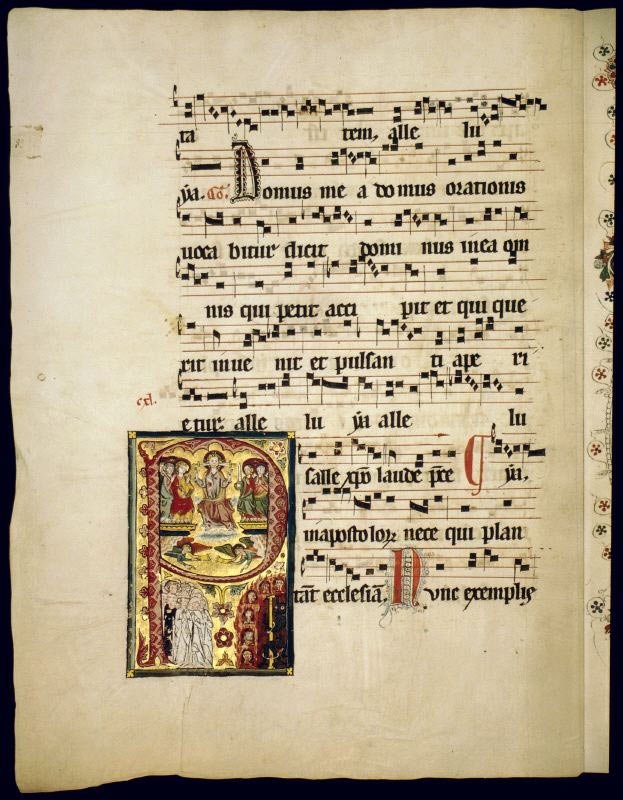 ta tem, alle lu
ya. Co. Domus me a do mus orationis
uoca bitur dicit domi nus in ea om
nis qui petit acci pit et qui que
rit inue nit et pulsan ti ape ri
cxl.
etur alle lu ya alle lu
Psalle xp̄o laude pr̄e ya.
in apostoloꝝ nece qui plan
tāt ecclesiā. Nunc exemplis